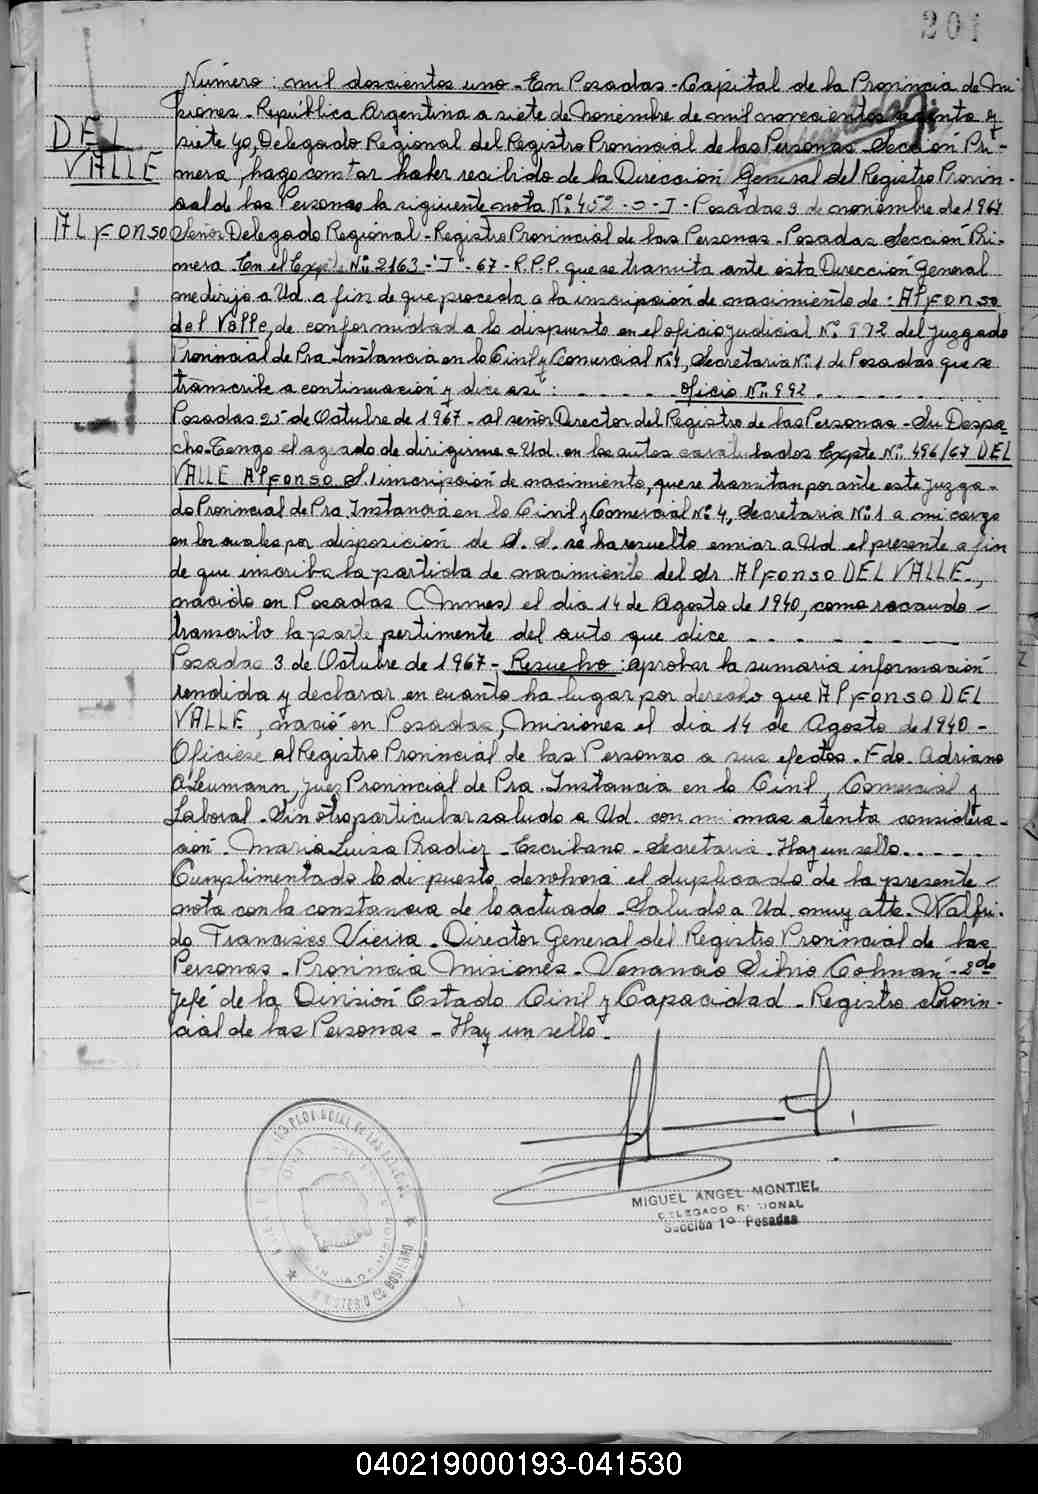 201
Número: mil doscientos uno - En Posadas - Capital de la Provincia de Mi
siones - República Argentina a siete de Noviembre de mil novecientos sesenta y
DEL
VALLE
siete yo, Delegado Regional del Registro Provincial de las Personas Sección Pri-
mera, hago constar haber recibido de la Dirección General del Registro Provin-
cial de las Personas la siguiente nota Nº 452 - D - I - Posadas 3 de noviembre de 1967
ALFONSO
Señor Delegado Regional - Registro Provincial de las Personas - Posadas Sección Pri-
mera - En el Expte Nº 2163 - "I" - 67 - R.P.P. que se tramita ante esta Dirección General
me dirijo a Ud. a fin de que proceda a la inscripción de nacimiento de: Alfonso
del Valle, de conformidad a lo dispuesto en el oficio judicial Nº 992 del Juzgado
Provincial de Pra Instancia en lo Civil y Comercial Nº 4, Secretaria Nº 1 de Posadas que se
transcribe a continuación y dice así: - - - - - Oficio Nº 992 - - - - - -
Posadas 25 de Octubre de 1967 - al señor Director del Registro de las Personas - Su Despa-
cho - Tengo el agrado de dirigirme a Ud. en los autos caratulados Expte Nº 496/67 DEL
VALLE Alfonso S. / inscripción de nacimiento, que se tramitan por ante este Juzga-
do Provincial de Pra Instancia en lo Civil y Comercial Nº 4, Secretaria Nº 1 a mi cargo
en los cuales por disposición de S. S. se ha resuelto enviar a Ud el presente a fin
de que inscriba la partida de nacimiento del Sr ALFONSO DEL VALLE -,
nacido en Posadas (Mnes) el dia 14 de Agosto de 1940, como recaudo -
transcribo la parte pertimente del auto que dice - - - - - -
Posadas 3 de Octubre de 1967 - Resuelvo: aprobar la sumaria información
rendida y declarar en cuanto ha lugar por derecho que ALFONSO DEL
VALLE, nació en Posadas, Misiones el dia 14 de Agosto de 1940 -
Oficiese al Registro Provincial de las Personas a sus efectos - Fdo. Adriano
O Leumann, Juez Provincial de Pra. Instancia en lo Civil, Comercial y
Laboral - Sin otro particular saludo a Ud. con mi mas atenta considera-
ción - Maria Luisa Pradier - Escribano - Secretaria - Hay un sello - - - -
Cumplimentado lo dispuesto devolverá el duplicado de la presente -
nota con la constancia de lo actuado - Saludo a Ud. muy atte. - Walfri-
do Francisco Vieira - Director General del Registro Provincial de las
Personas - Provincia Misiones - Venancio Silvio Colman - 2do
Jefe de la División Estado Civil y Capacidad - Registro Provin-
cial de las Personas - Hay un sello -
MIGUEL ANGEL MONTIEL
DELEGADO REGIONAL
Sección 1º Posadas
040219000193-041530